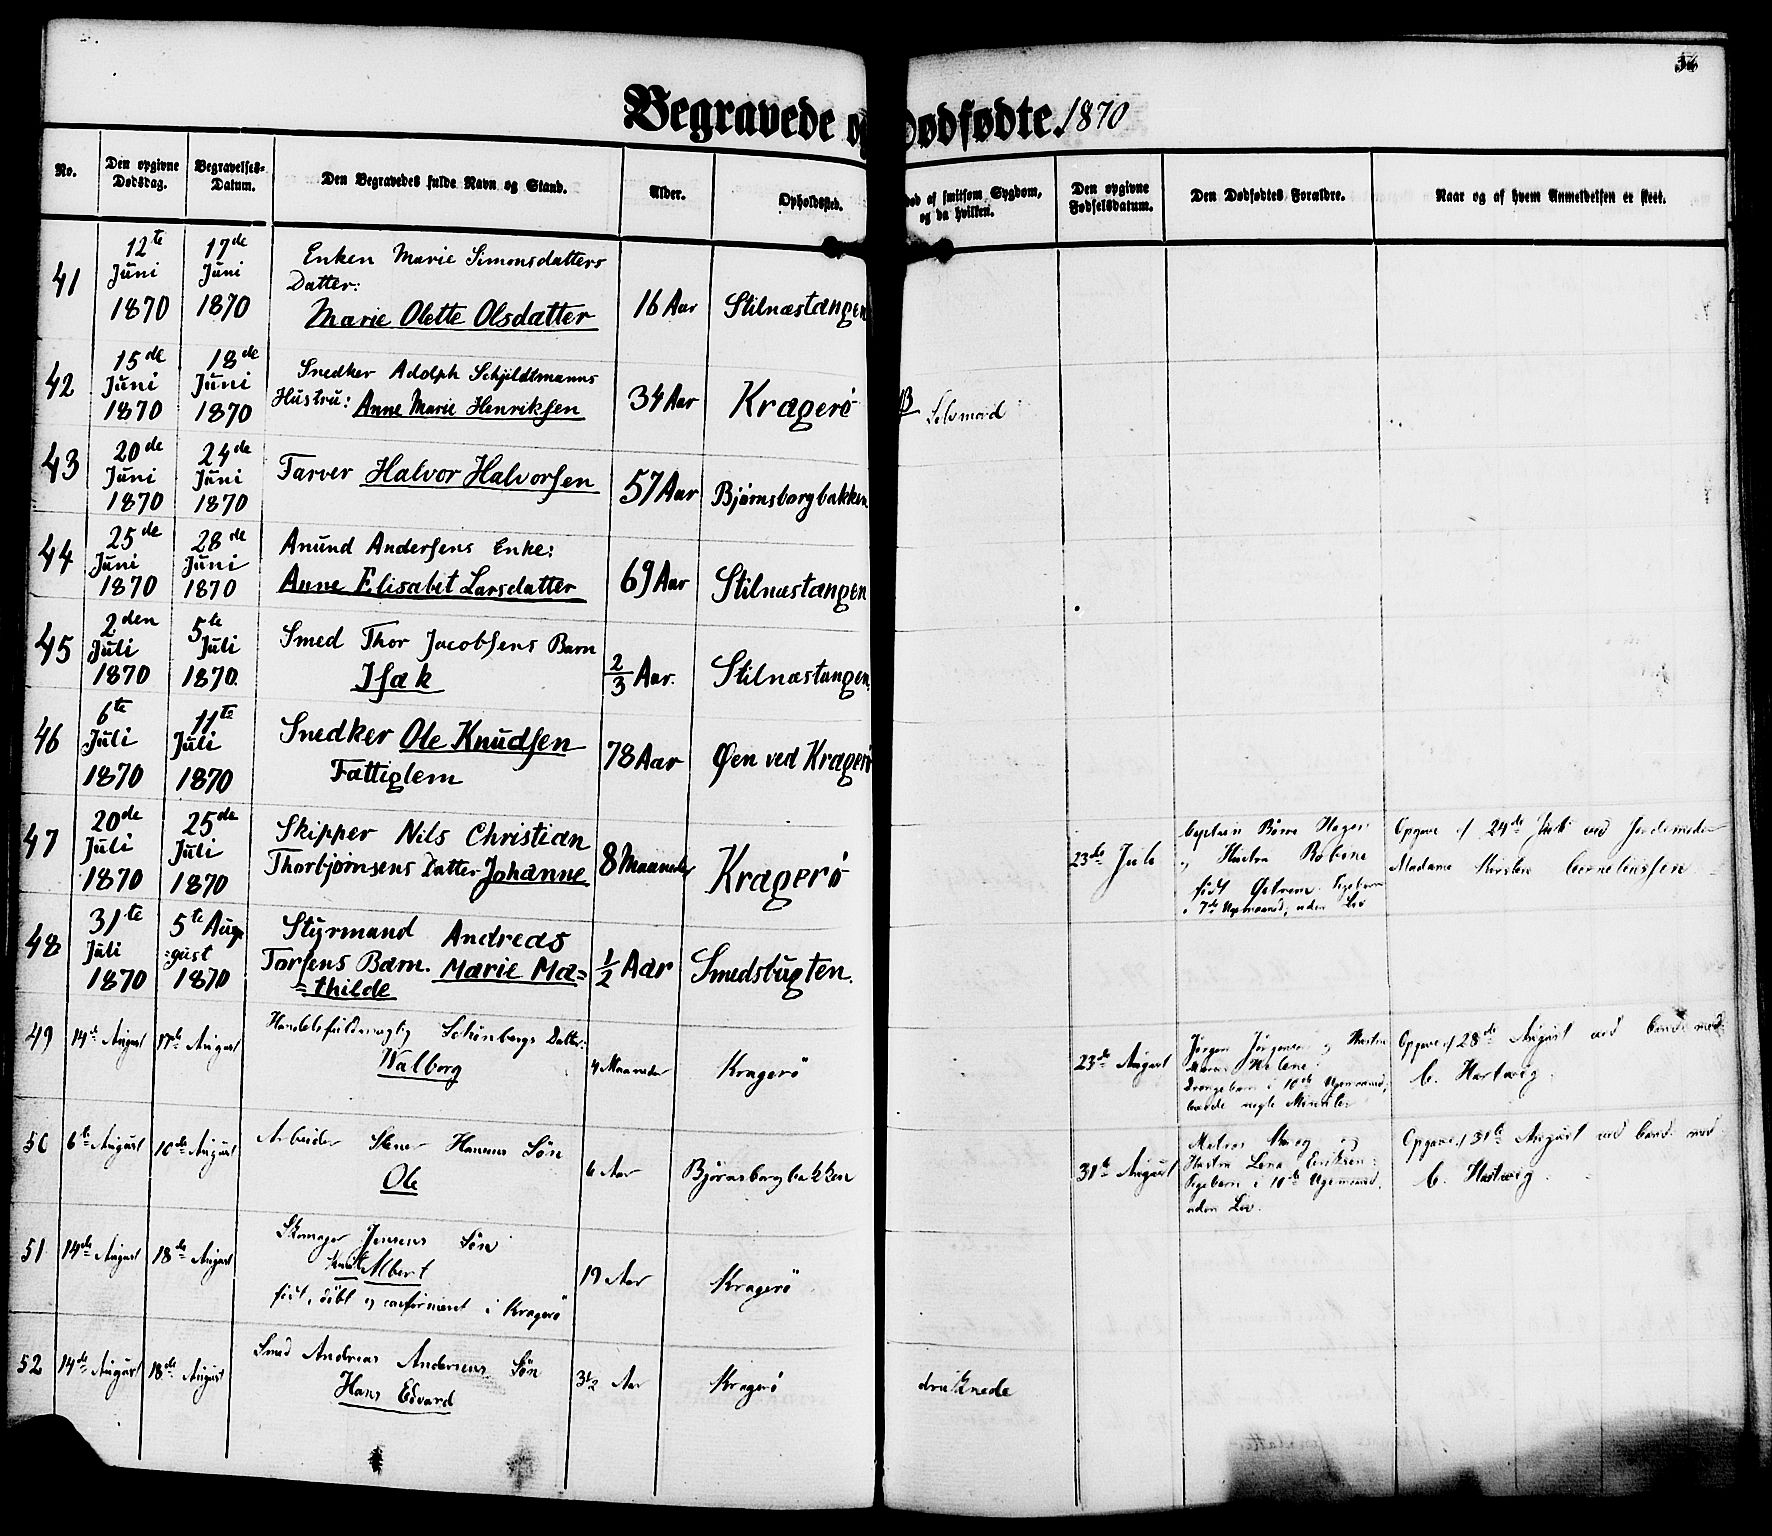 Begravede o
No.
Den opgivne
Dødsdag.
Begravelses-
Datum.
Den Begravedes fulde Navn og Stand.
Alder.
Opholdssted.
41
12te
Juni
1870
17de
Juni
1870
Enken Marie Simonsdatters
Datter:
Marie Olette Olsdatter
16 Aar
Stilnæstangen
42
15de
Juni
1870
18de
Juni
1870
Snedker Adolph Schjeldtmanns
Hustru: Anne Marie Henriksen
34 Aar
Kragerø
43
20de
Juni
1870
24de
Juni
1870
Farver Halvor Halvorsen
57 Aar
Bjørnsborgbakken
44
25de
Juni
1870
28de
Juni
1870
Anund Andersens Enke:
Anne Elisabet Larsdatter
69 Aar
Stilnæstangen
45
2den
Juli
1870
5te
Juli
1870.
Smed Thor Jacobsens Barn
Isak
2/3 Aar.
Stilnæstangen.
46
6te
Juli
1870
11te
Juli
1870
Snedker Ole Knudsen
Fattiglem
78 Aar
Øen ved Kragerø
47
20de
Juli
1870
25de
Juli
1870
Skipper Nils Christian
Thorbjørnsens Datter Johanne
8 Maaneder
Kragerø
48
31te
Juli
1870
5te Aug
=gust
1870
Styrmand Andreas
Torsens Barn. Marie Ma=
=thilde
1/2 Aar
Smedsbugten.
49
14de August
17de August
Handelsfuldmægtig Schønbergs Datter:
Walborg
4 Maaneder
Kragerö
50
6te August
10de August
Arbeider Stener Hansens Søn
Ole
6 Aar
Bjørnsborgbakken
51
14de August
18de August
Skomager Jensens Søn
Knud Albert
født, döbt og confirmeret i Kragerö
19 Aar
Kragerö
52
14de August
18de August
Smed Andreas Andersens Søn
Hans Edvard
3 1/2 Aar
Kragerö
36
Dødfødte. 1870
Død af smitsom Sygdom,
og da hvilken.
Den opgivne
Fødselsdatum.
Den Dødfødtes Forældre.
Naar og af hvem Anmeldelsen er skeet.
Selvmord
23de Juli
Captein Hager
og Hustru
født Østrem. Pigebarn
i 7de Ugemaaned, uden Liv
Opgave af 24de Juli ved Jordemoder
Madame Kirsten Corneliussen
23de August
Jørgen Jørgensen og Hustru
Maren Helene:
Drengebarn i 10de Ugemaaned,
havde nogle Minuter
Opgave af 28de August ved Cand. med.
C. Hartwig.
31te August
Matros og
Hustru Lena Eriksen:
Pigebarn i 10de Ugemaaned,
uden Liv.
Opgave af 31te August ved Cand. med.
C. Hartwig.
druknede